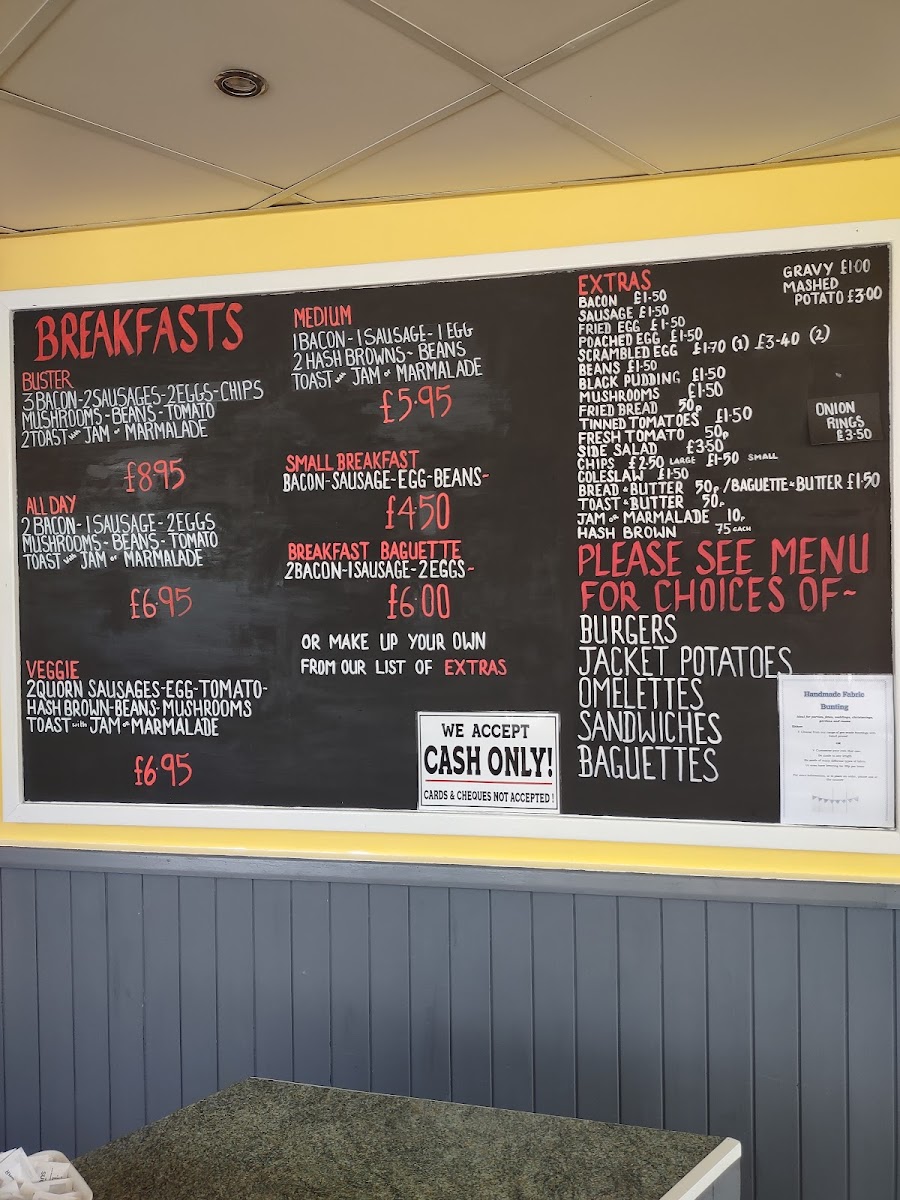 BREAKFASTS
BUSTER
3 BACON-2 SAUSAGES-2 EGGS-CHIPS
MUSHROOMS-BEANS-TOMATO
2 TOAST with JAM or MARMALADE
£8.95
ALL DAY
2 BACON-1 SAUSAGE-2 EGGS
MUSHROOMS-BEANS-TOMATO
TOAST with JAM or MARMALADE
£6.95
VEGGIE
2 QUORN SAUSAGES-EGG-TOMATO-
HASH BROWN-BEANS-MUSHROOMS
TOAST with JAM or MARMALADE
£6.95
MEDIUM
1 BACON-1 SAUSAGE-1 EGG
2 HASH BROWNS~ BEANS
TOAST with JAM or MARMALADE
£5.95
SMALL BREAKFAST
BACON-SAUSAGE-EGG-BEANS-
£4.50
BREAKFAST BAGUETTE
2 BACON-1 SAUSAGE-2 EGGS-
£6.00
OR MAKE UP YOUR OWN
FROM OUR LIST OF EXTRAS
WE ACCEPT
CASH ONLY!
CARDS & CHEQUES NOT ACCEPTED!
EXTRAS
BACON £1.50
SAUSAGE £1.50
FRIED EGG £1.50
POACHED EGG £1.50
SCRAMBLED EGG £1.70 (1) £3.40 (2)
BEANS £1.50
BLACK PUDDING £1.50
MUSHROOMS £1.50
FRIED BREAD 50p
TINNED TOMATOES £1.50
FRESH TOMATO 50p
SIDE SALAD £3.50
CHIPS £2.50 LARGE £1.50 SMALL
COLESLAW £1.50
BREAD & BUTTER 50p /BAGUETTE & BUTTER £1.50
TOAST & BUTTER 50p
JAM or MARMALADE 10p
HASH BROWN 75 EACH
GRAVY £1.00
MASHED
POTATO £3.00
ONION
RINGS
£3.50
PLEASE SEE MENU
FOR CHOICES OF~
BURGERS
JACKET POTATOES
OMELETTES
SANDWICHES
BAGUETTES
Handmade Fabric
Bunting